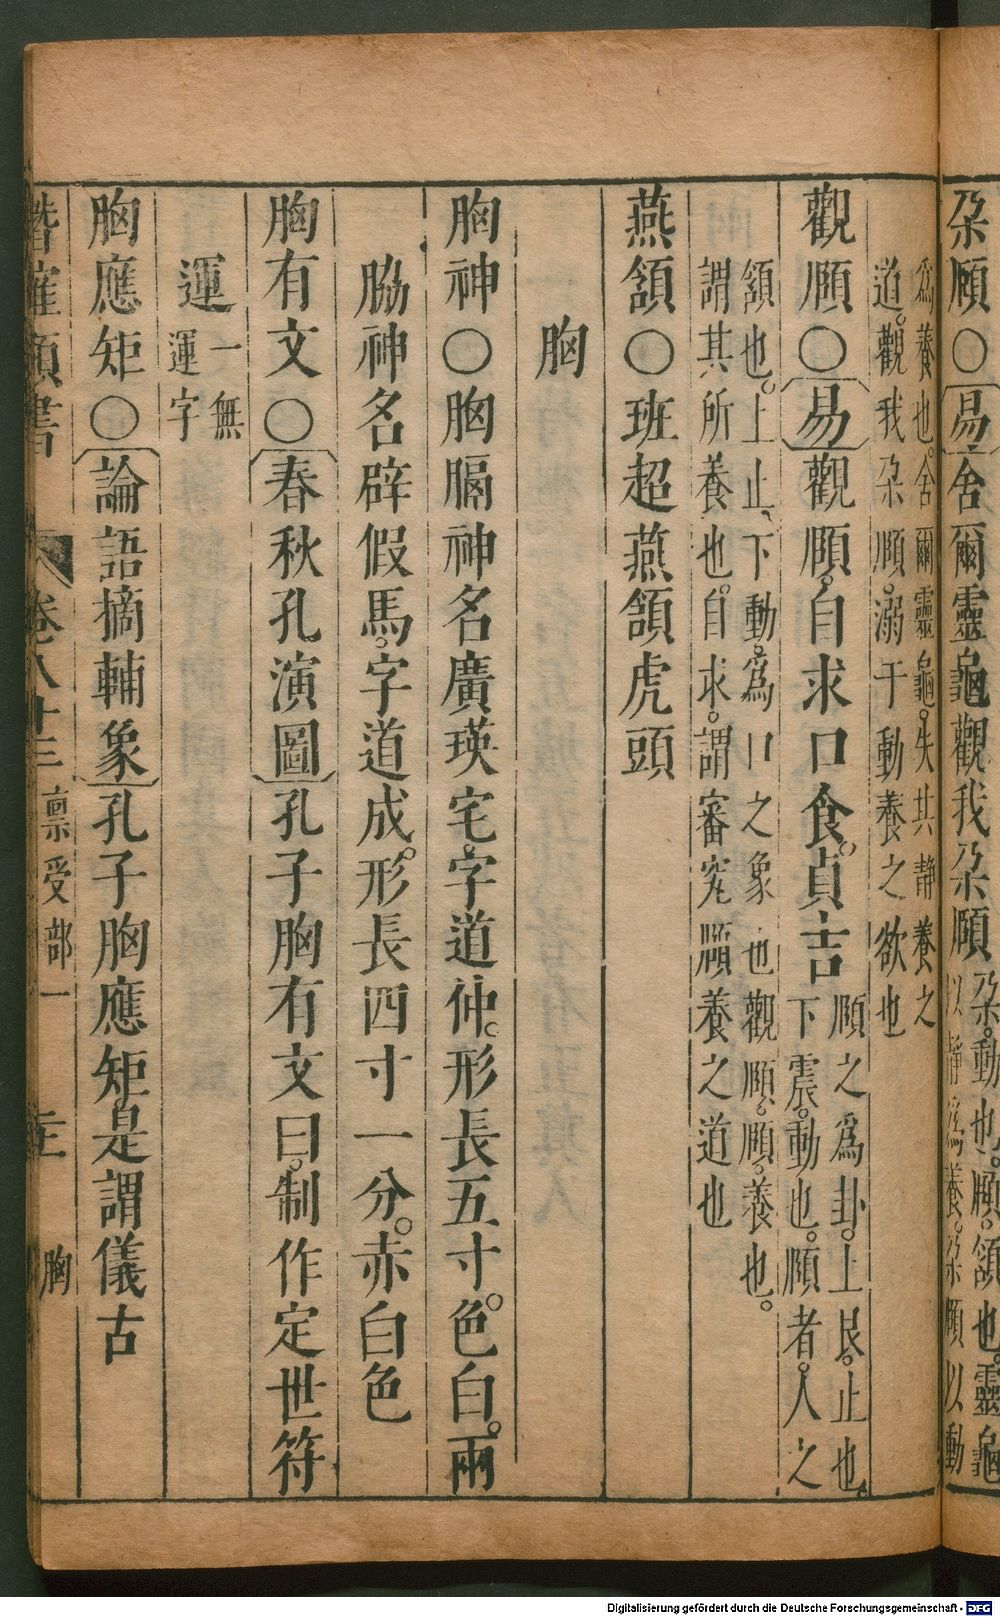 朶頤○易舍爾靈龜觀我朶頤朶動也頤頷也靈龜
以靜爲養朶頤以動
爲養也舍爾靈龜失其靜養之
道觀我朶頤溺于動養之欲也
觀頤○易觀頤自求口食貞吉頤之爲卦上艮止也
下震動也頤者人之
頷也上止下動爲口之象也觀頤頤養也
謂其所養也自求謂審究頤養之道也
燕頷○班超燕頷虎頭
胸
胸神○胸膈神名廣瑛宅字道仲形長五寸色白兩
脇神名辟假馬字道成形長四寸一分赤白色
胸有文○春秋孔演圖孔子胸有文曰制作定世符
運一無
運字
胸應矩○論語摘輔象孔子胸應矩是謂儀古
潛確類書 卷八十三 禀受部一 胸
Digitalisierung gefördert durch die Deutsche Forschungsgemeinschaft - DFG